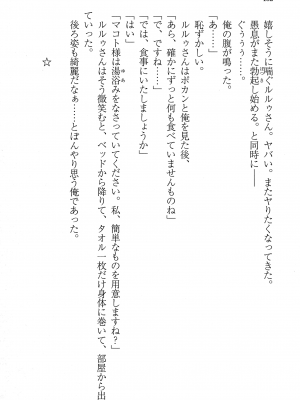 嬉しそうに喘ぐルルゥさん。ヤバい。またヤりたくなってきた。
愚息がまた勃起し始める。と同時に――
ぐぅぅぅ……。
俺の腹が鳴った。
「あ……」
恥ずかしい。
ルルゥさんはポカンと俺を見た後、
「あら、確かにずっと何も食べていませんものね」
「で、ですね……」
「では、食事にいたしましょうか」
「はい」
「マコト様は湯浴みをなさっていてください。私、簡単なものを用意しますね？」
ルルゥさんはそう微笑むと、ベッドから降りて、タオル一枚だけ身体に巻いて、部屋から出
ていった。
後ろ姿も綺麗だなぁ……とぼんやり思う俺であった。
☆